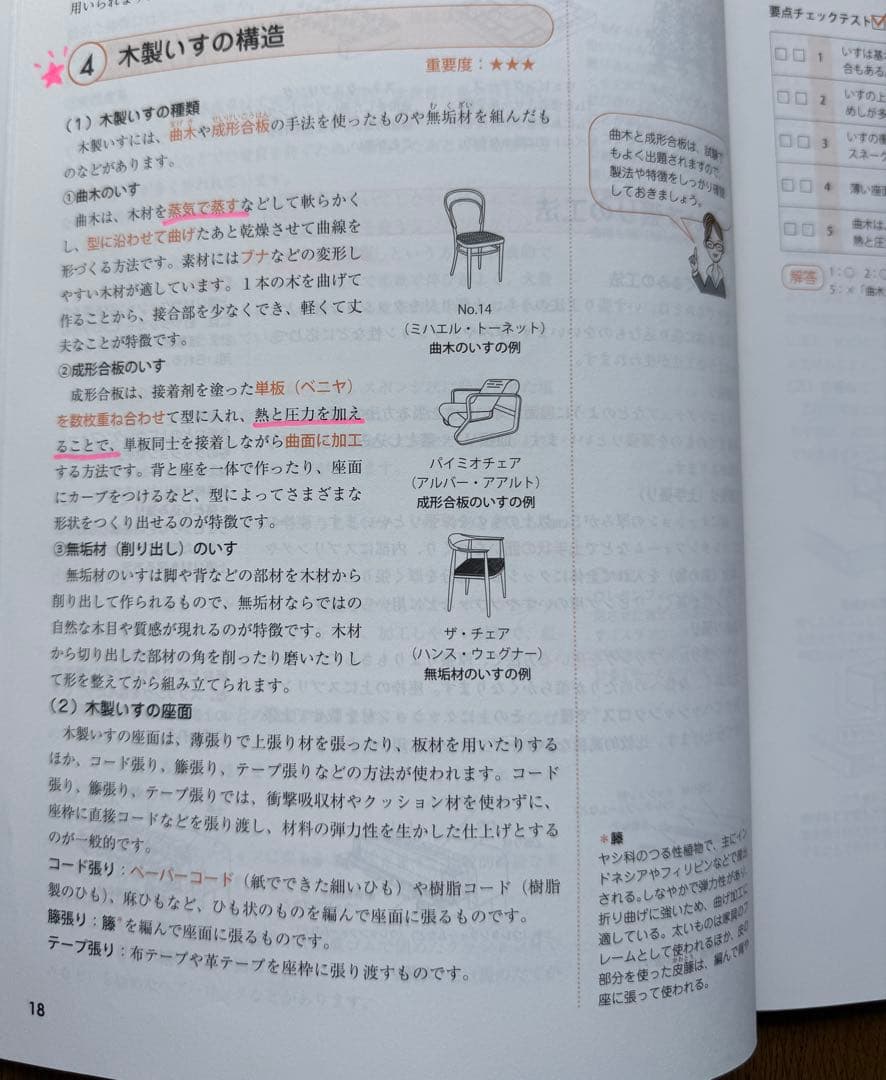 用いられます
4 木製いすの構造
重要度：★★★
(1) 木製いすの種類
木製いすには、曲木や成形合板の手法を使ったものや無垢材を組んだも
のなどがあります。
①曲木のいす
曲木は、木材を蒸気で蒸すなどして軟らかく
し、型に沿わせて曲げたあと乾燥させて曲線を
形づくる方法です。素材にはブナなどの変形し
やすい木材が適しています。1本の木を曲げて
作ることから、接合部を少なくでき、軽くて丈
夫なことが特徴です。
No.14
（ミハエル・トーネット）
曲木のいすの例
②成形合板のいす
成形合板は、接着剤を塗った単板（ベニヤ）
を数枚重ね合わせて型に入れ、熱と圧力を加え
ることで、単板同士を接着しながら曲面に加工
する方法です。背と座を一体で作ったり、座面
にカーブをつけるなど、型によってさまざまな
形状をつくり出せるのが特徴です。
パイミオチェア
（アルバー・アアルト）
成形合板のいすの例
③無垢材（削り出し）のいす
無垢材のいすは脚や背などの部材を木材から
削り出して作られるもので、無垢材ならではの
自然な木目や質感が現れるのが特徴です。木材
から切り出した部材の角を削ったり磨いたりし
て形を整えてから組み立てられます。
ザ・チェア
（ハンス・ウェグナー）
無垢材のいすの例
(2) 木製いすの座面
木製いすの座面は、薄張りで上張り材を張ったり、板材を用いたりする
ほか、コード張り、籐張り、テープ張りなどの方法が使われます。コード
張り、籐張り、テープ張りでは、衝撃吸収材やクッション材を使わずに、
座枠に直接コードなどを張り渡し、材料の弾力性を生かした仕上げとする
のが一般的です。
コード張り：ペーパーコード（紙でできた細いひも）や樹脂コード（樹脂
製のひも）、麻ひもなど、ひも状のものを編んで座面に張るものです。
籐張り：籐*を編んで座面に張るものです。
テープ張り：布テープや革テープを座枠に張り渡すものです。
18
曲木と成形合板は、試験で
もよく出題されますので、
製法や特徴をしっかり確認
しておきましょう。
*籐
ヤシ科のつる性植物で、主にイン
ドネシアやフィリピンなどで産出
される。しなやかで弾力性があり、
折り曲げに強いため、曲げ加工に
適している。太いものは家具のフ
レームとして使われるほか、皮の
部分を使った皮籐は、編んで背や
座に張って使われる。
要点チェックテスト
1 いすは基
合もある
2 いすの上
めしが多
3 いすの衝
スネーク
4 薄い座面
5 曲木は、
熱と圧
解答 1：○ 2：
5：×「曲木